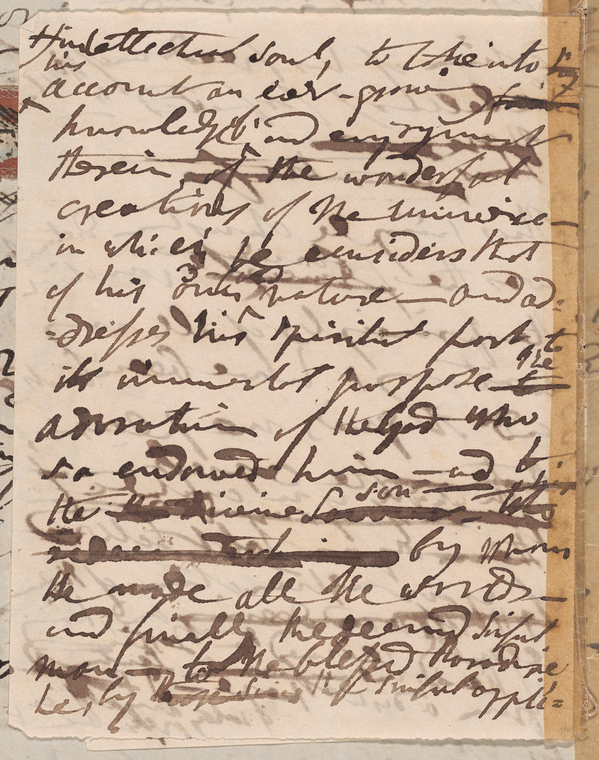 intellectual soul, to take into
his
account an ever-growing
knowledge and enjoyment
therein of the wonderful
creations of the universe
in which he considers that
of his own nature — and ad-
-dresses his spiritual part to
its immortal purpose the
adoration of the God who
so endowed him — and
the divine son
by whom
He made all the worlds —
and finally redeemed sinful
man — to the blessed Paradise
He, by